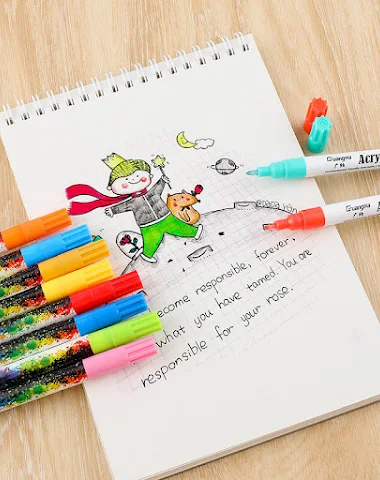 Guangna
广纳
Acry
Guangna
广纳
Ac
ecome responsible, forever,
what you have tamed. You are
responsible for your rose.